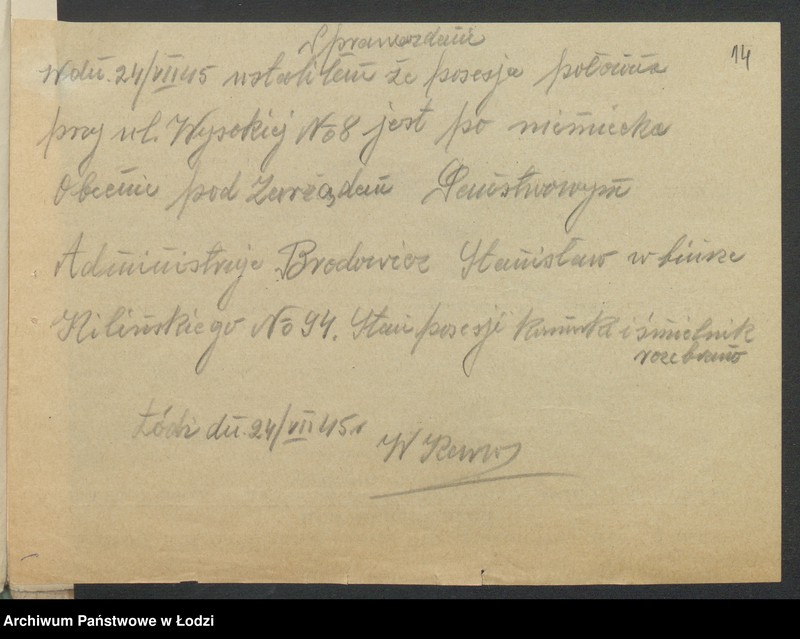 Sprawozdanie
14
W dn. 24/VII 45 ustaliłem że posesja połowna
przy ul. Wysokiej No 8 jest po niemiecka
Obecnie pod Zarządem Państwowym
Administruje Brodowicz Stanisław w biurze
Kilińskiego No 94. Stan posesji komórki i śmietnik
rozebrano
Łódź dn. 24/VII 45 r
W
Archiwum Państwowe w Łodzi